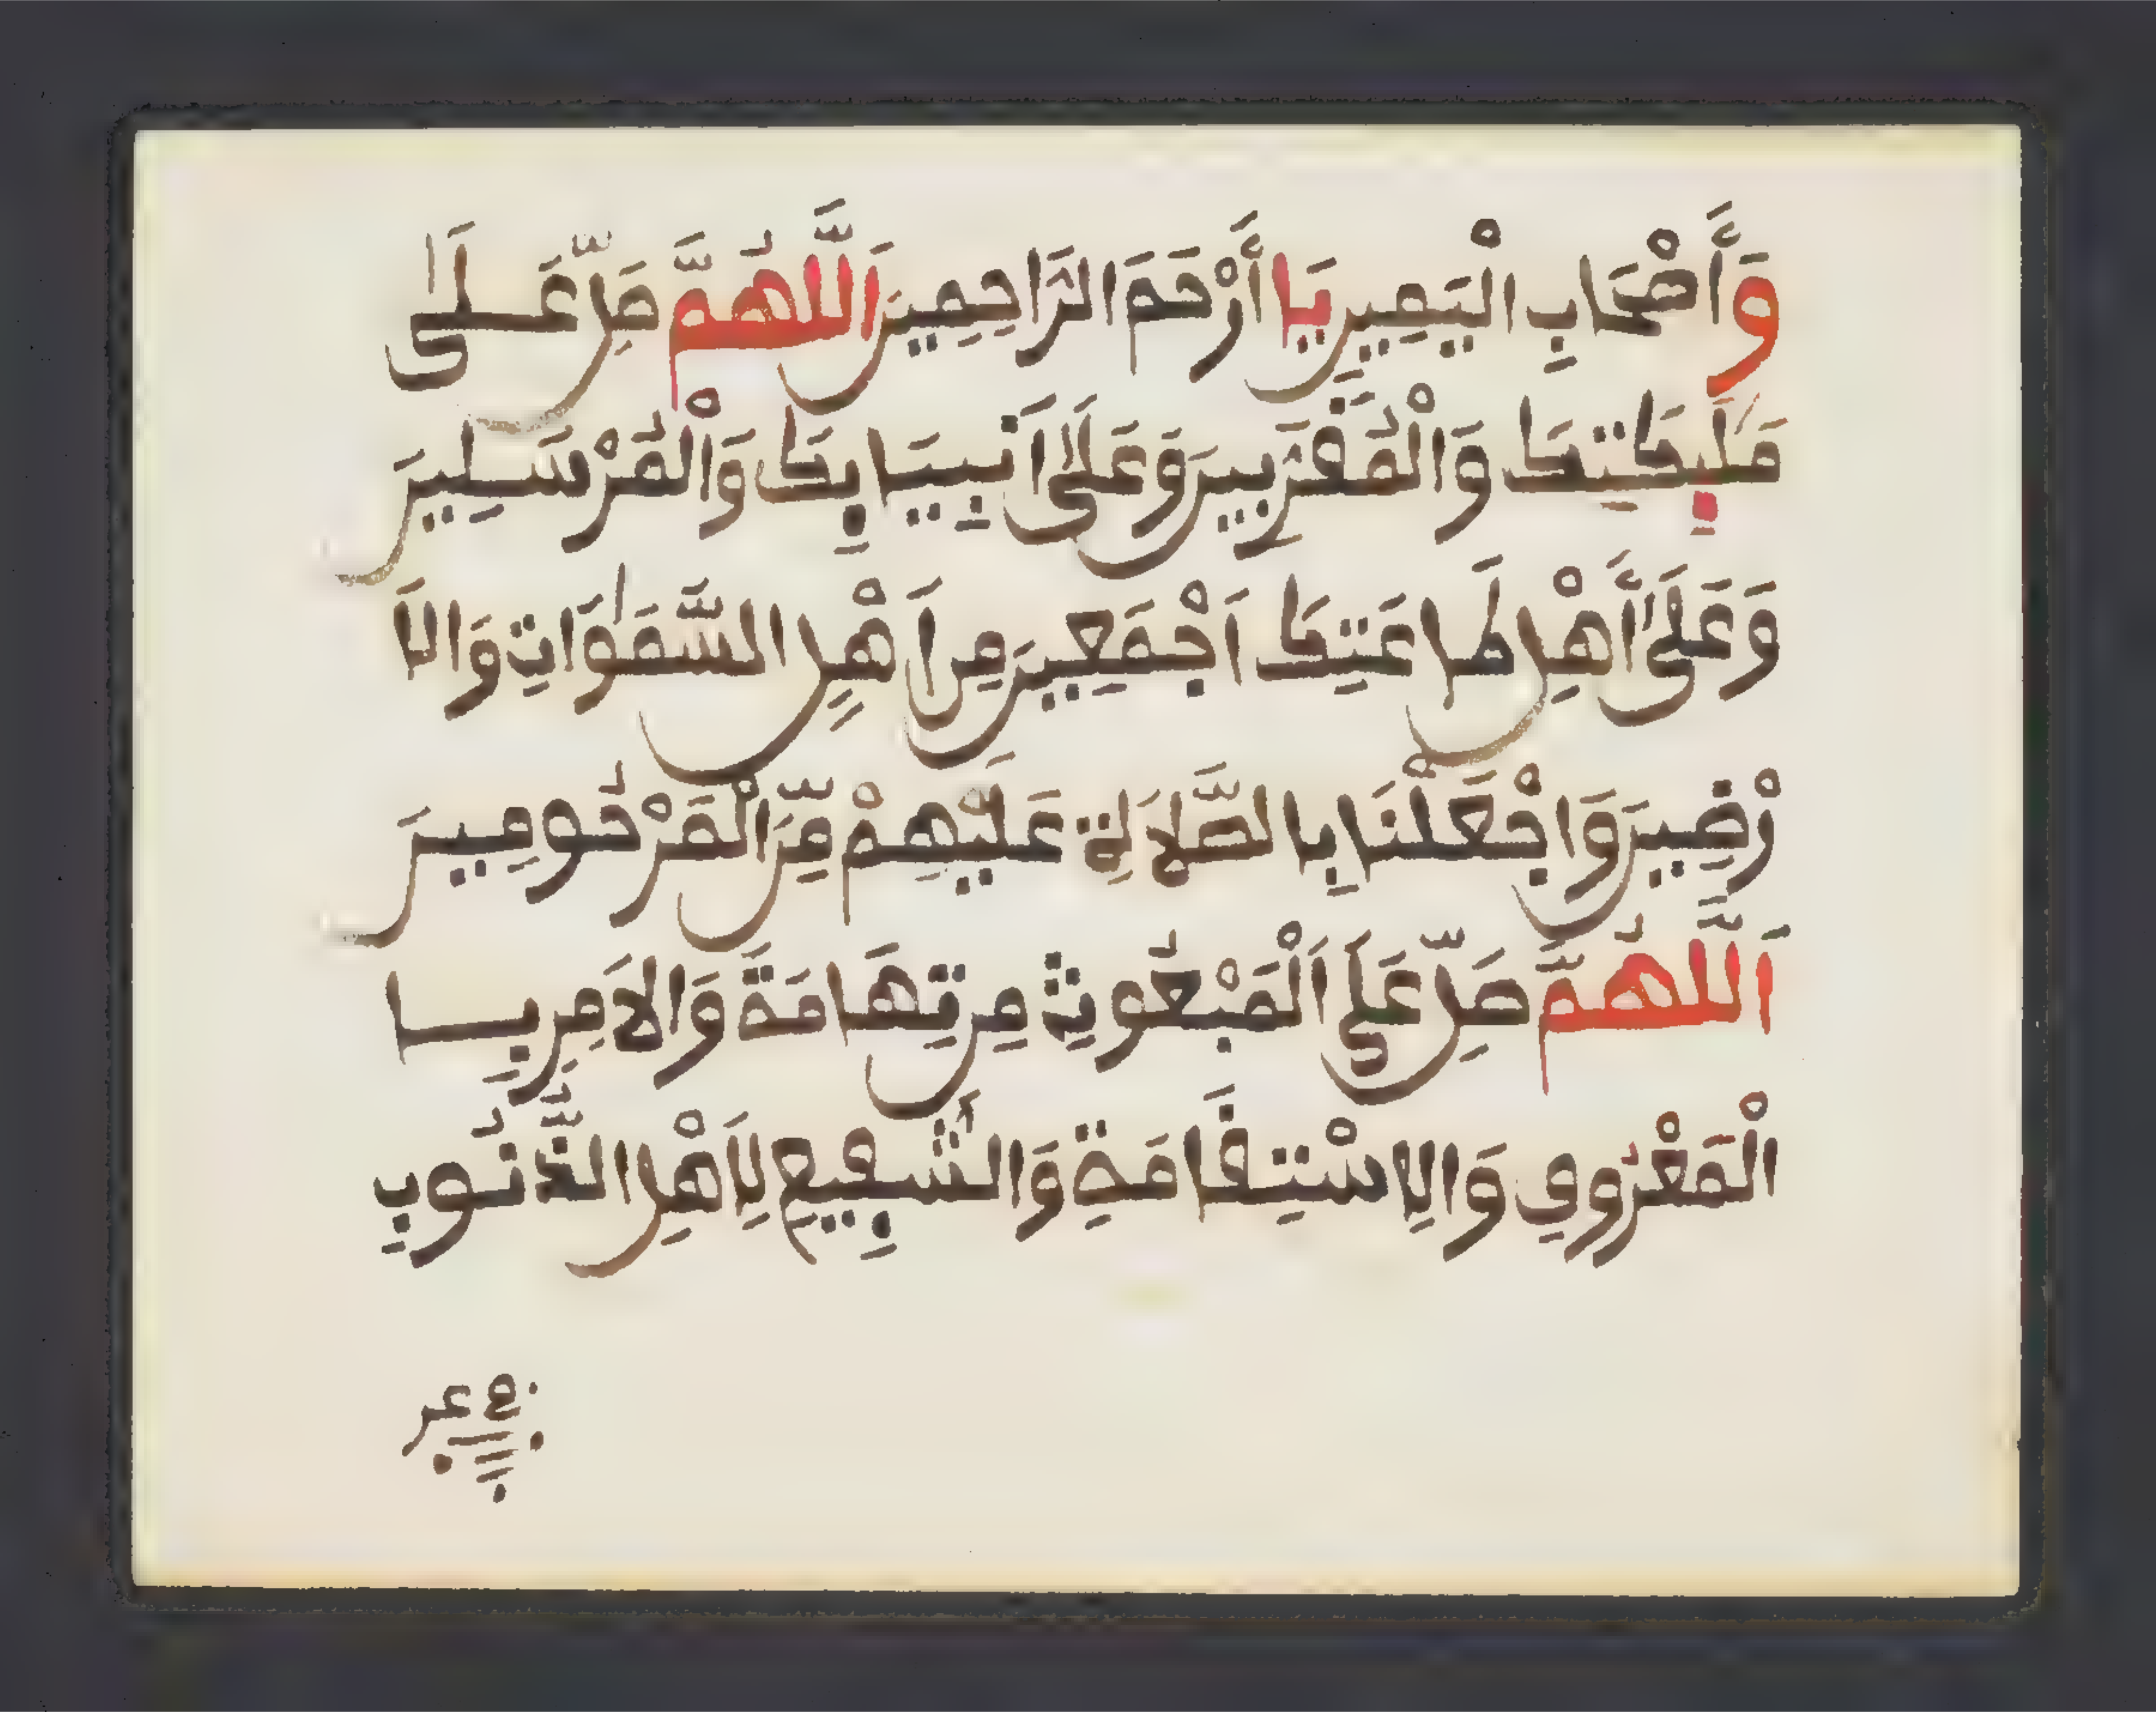 وَأَصْحَابِ الْيَمِينِ يَا أَرْحَمَ الرَّاحِمِينَ اَللَّهُمَّ صَلِّ عَلَى
مَلَئِكَتِكَ وَالْمُقَرَّبِينَ وَعَلَى أَنْبِيَائِكَ وَالْمُرْسَلِينَ
وَعَلَى أَهْلِ طَاعَتِكَ اَجْمَعِينَ مِنَ اَهْلِ السَّمَوَاتِ وَالاَ
رْضِينَ وَاجْعَلْنَا بِالصَّلاَةِ عَلَيْهِمْ مِّنَ الْمَرْحُومِينَ
اَللَّهُمَّ صَلِّ عَلَى اَلْمَبْعُوثِ مِن تِهَامَةَ وَالاَمِرِ بِا
لْمَعْرُوفِ وَالاِسْتِقَامَةِ وَالشَّفِيعِ لِأَهْلِ الذُّنُوبِ